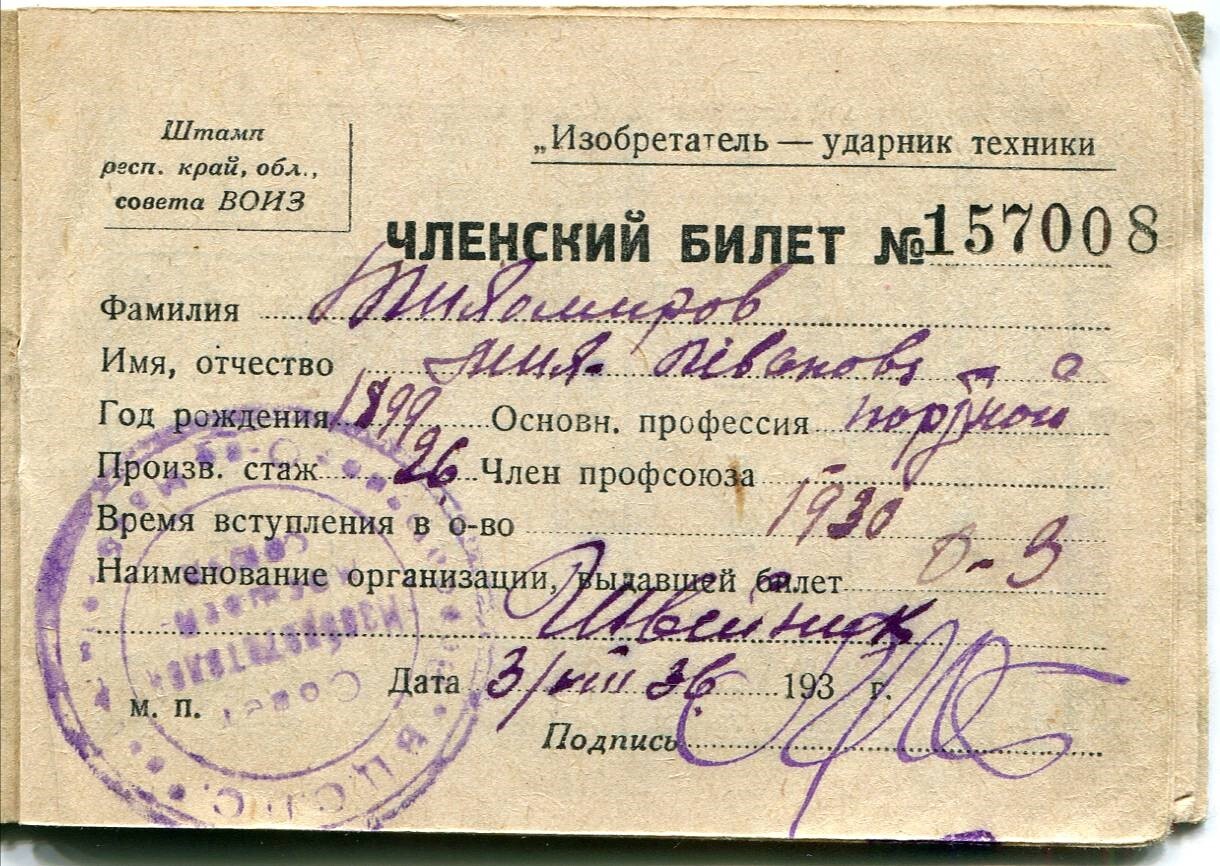 Штамп
респ. край, обл.,
совета ВОИЗ
„Изобретатель — ударник техники
ЧЛЕНСКИЙ БИЛЕТ № 157008
Фамилия Тихомиров
Имя, отчество Мих. Иванов
Год рождения 1899 Основн. профессия портной
Произв. стаж 26 Член профсоюза
Время вступления в о-во 1930
Наименование организации, выдавшей билет
Швейник
Дата 3/VIII 36 193 г.
м. п.
Подпись
Совет
Изобретателей
В.Ц.С.П.С.